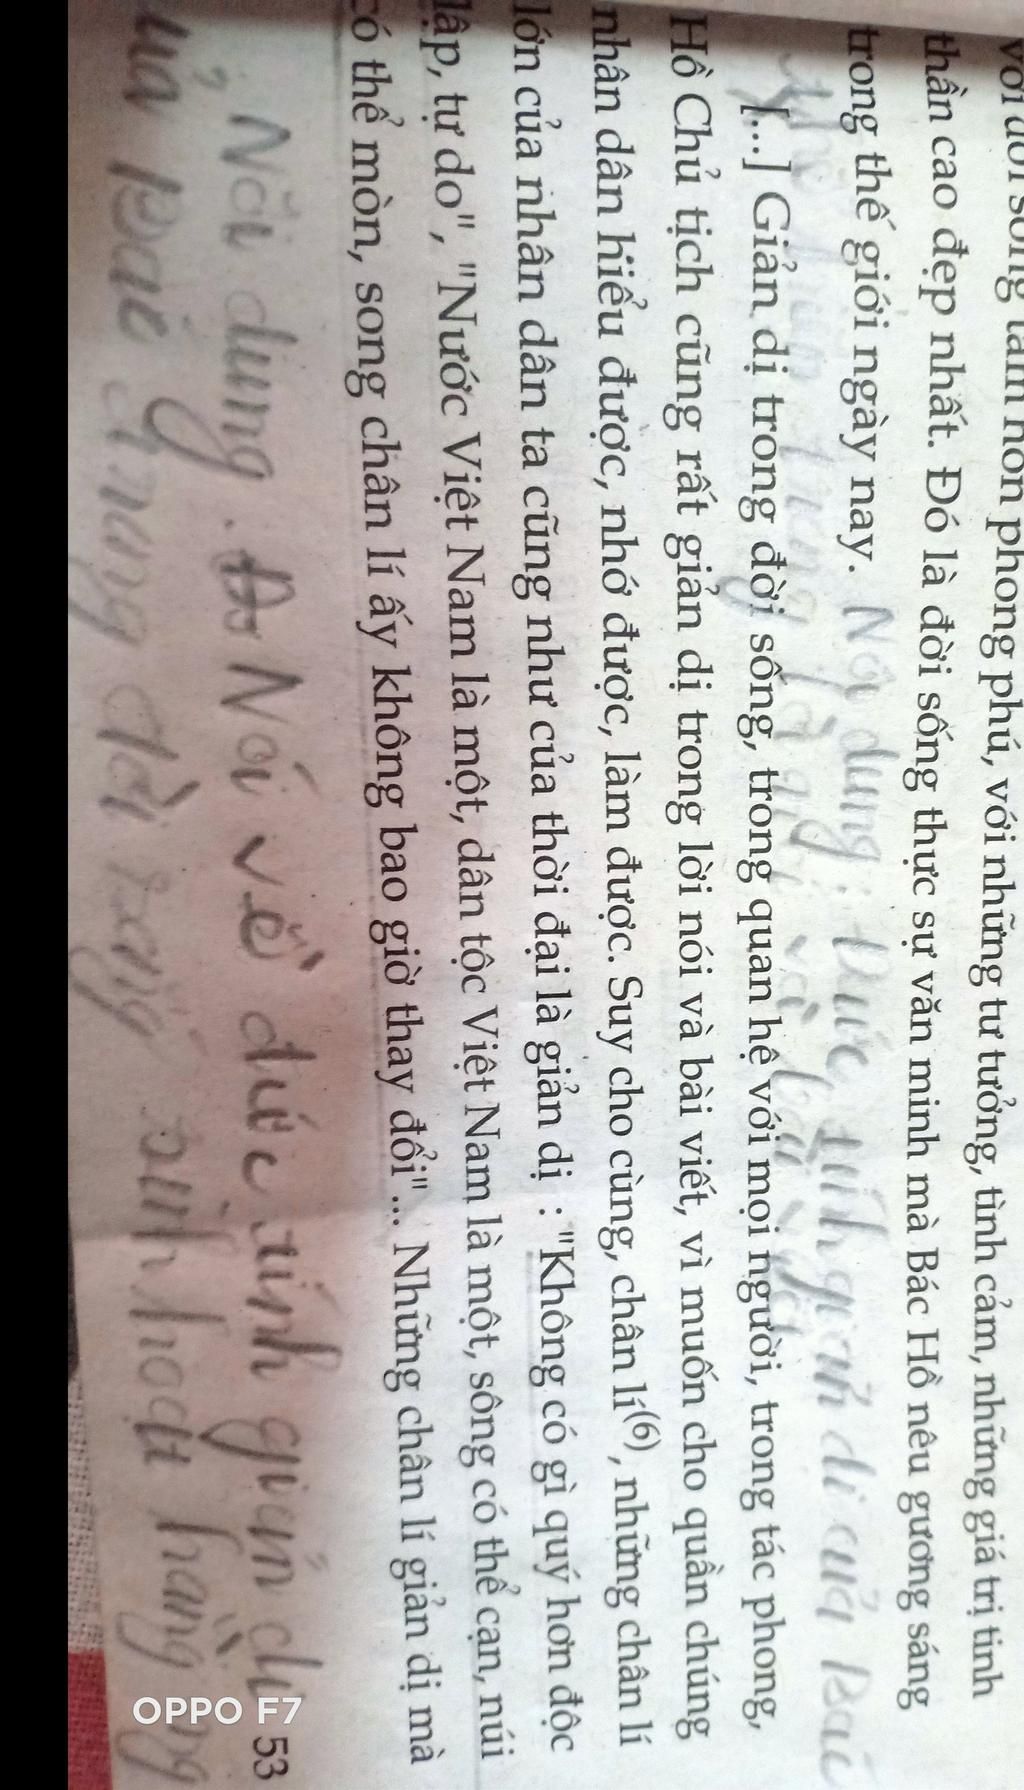 với đời sống tâm hồn phong phú, với những tư tưởng, tình cảm, những giá trị tinh
thần cao đẹp nhất. Đó là đời sống thực sự văn minh mà Bác Hồ nêu gương sáng
trong thế giới ngày nay. Nội dung : Đức tính giản dị của Bác
[...] Giản dị trong đời sống, trong quan hệ với mọi người, trong tác phong,
Hồ Chủ tịch cũng rất giản dị trong lời nói và bài viết, vì muốn cho quần chúng
nhân dân hiểu được, nhớ được, làm được. Suy cho cùng, chân lí(6), những chân lí
lớn của nhân dân ta cũng như của thời đại là giản dị : "Không có gì quý hơn độc
lập, tự do", "Nước Việt Nam là một, dân tộc Việt Nam là một, sông có thể cạn, núi
có thể mòn, song chân lí ấy không bao giờ thay đổi"... Những chân lí giản dị mà
Nội dung : Nói về đức tính giản dị
của Bác trong đời sống sinh hoạt hằng
53
OPPO F7